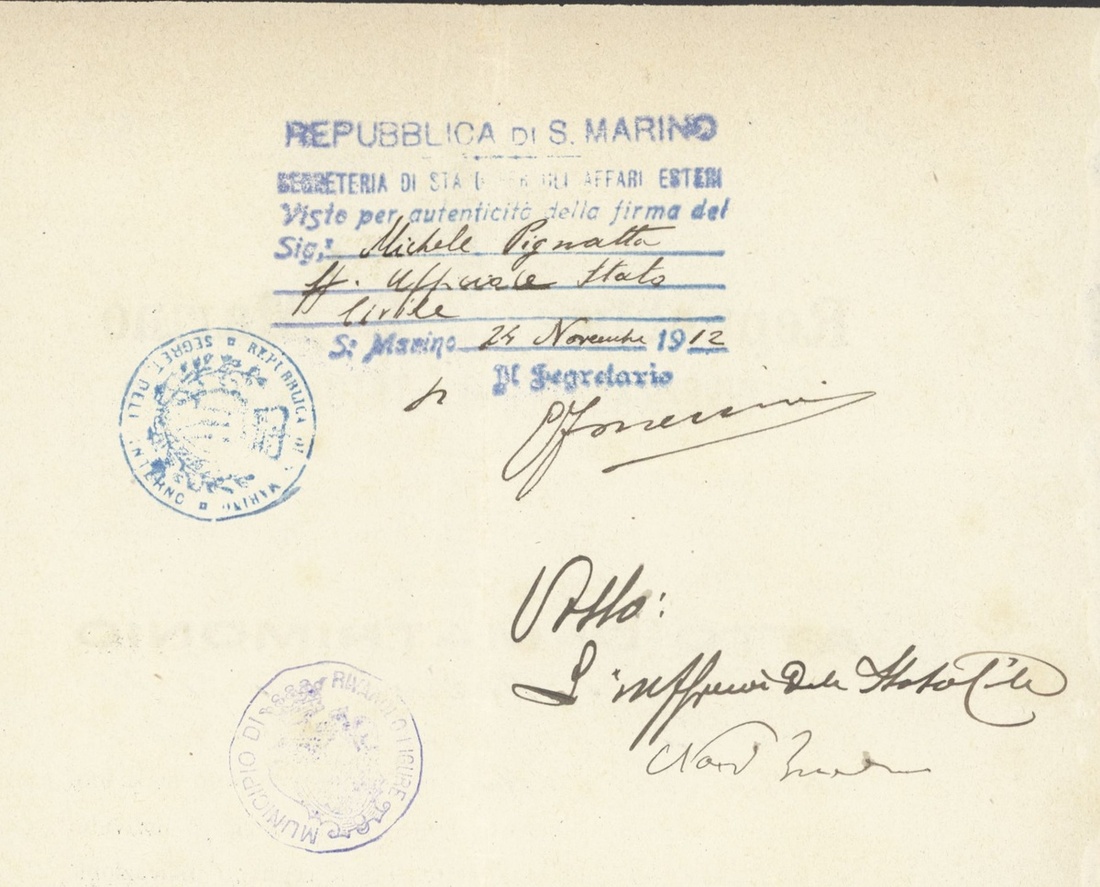 REPUBBLICA DI S. MARINO
SEGRETERIA DI STATO PER GLI AFFARI ESTERI
Visto per autenticità della firma del
Sig.r Michele Pignatta
Ufficiale Stato
Civile
S. Marino 24 Novembre 1912
Il Segretario
REPUBBLICA DI S. MARINO
SEGRET. DELL' INTERNO
Visto:
L'uff Stato C
MUNICIPIO DI RIVAROLO LIGURE